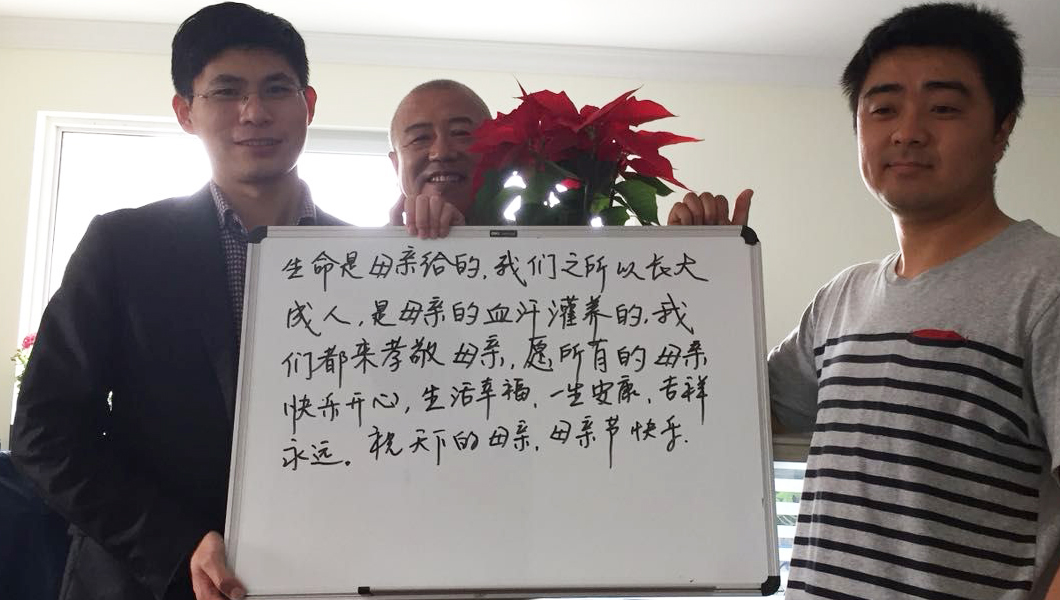 生命是母亲给的,我们之所以长大
成人,是母亲的血汗灌养的,我
们都来孝敬母亲,愿所有的母亲
快乐开心,生活幸福,一生安康,吉祥
永远。祝天下的母亲,母亲节快乐.